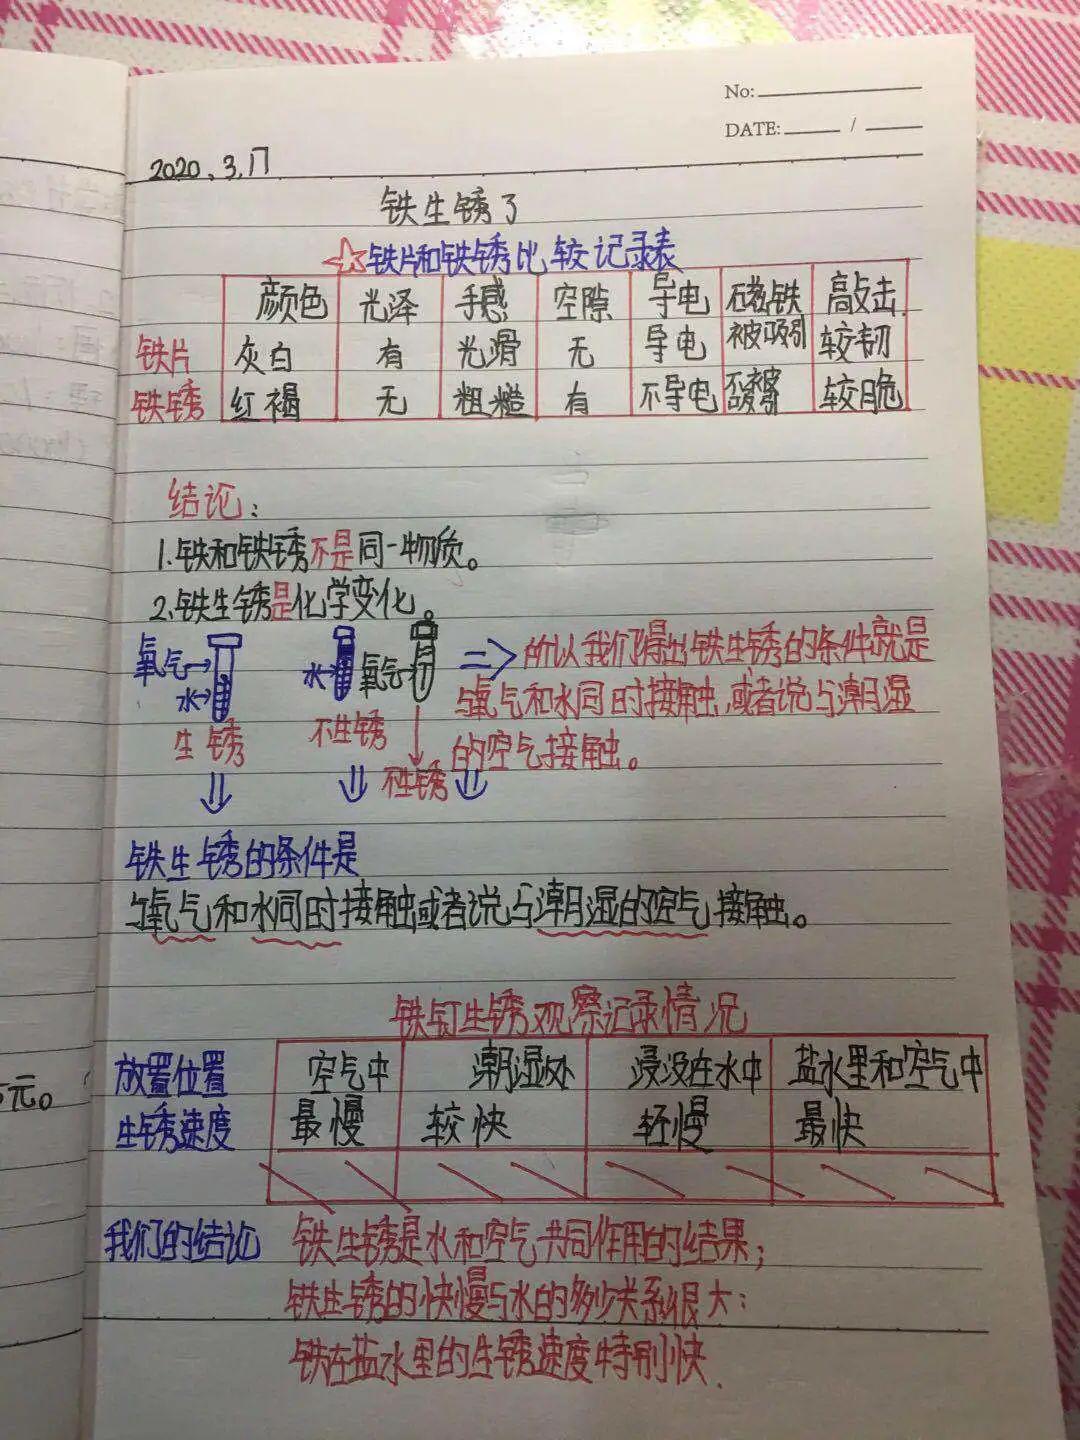 No:
DATE: /
2020.3.17
铁生锈了
☆铁片和铁锈比较记录表
颜色 光泽 手感 空隙 导电 磁铁 敲击
铁片 灰白 有 光滑 无 导电 被吸引 较韧
铁锈 红褐 无 粗糙 有 不导电 较脆
结论:
1.铁和铁锈不是同一物质。
2.铁生锈是化学变化。
氧气→ 水→ 水→ 氧气→ ⇒所以我们得出铁生锈的条件就是
与氧气和水同时接触,或者说与潮湿
生锈 不生锈 的空气接触。
不生锈
铁生锈的条件是
与氧气和水同时接触或者说与潮湿的空气接触。
铁钉生锈观察记录情况
放置位置 空气中 潮湿处 浸没在水中 盐水里和空气中
生锈速度 最慢 较快 较慢 最快
我们的结论 铁生锈是水和空气共同作用的结果;
铁生锈的快慢与水的多少关系很大:
铁在盐水里的生锈速度特别快.
元。